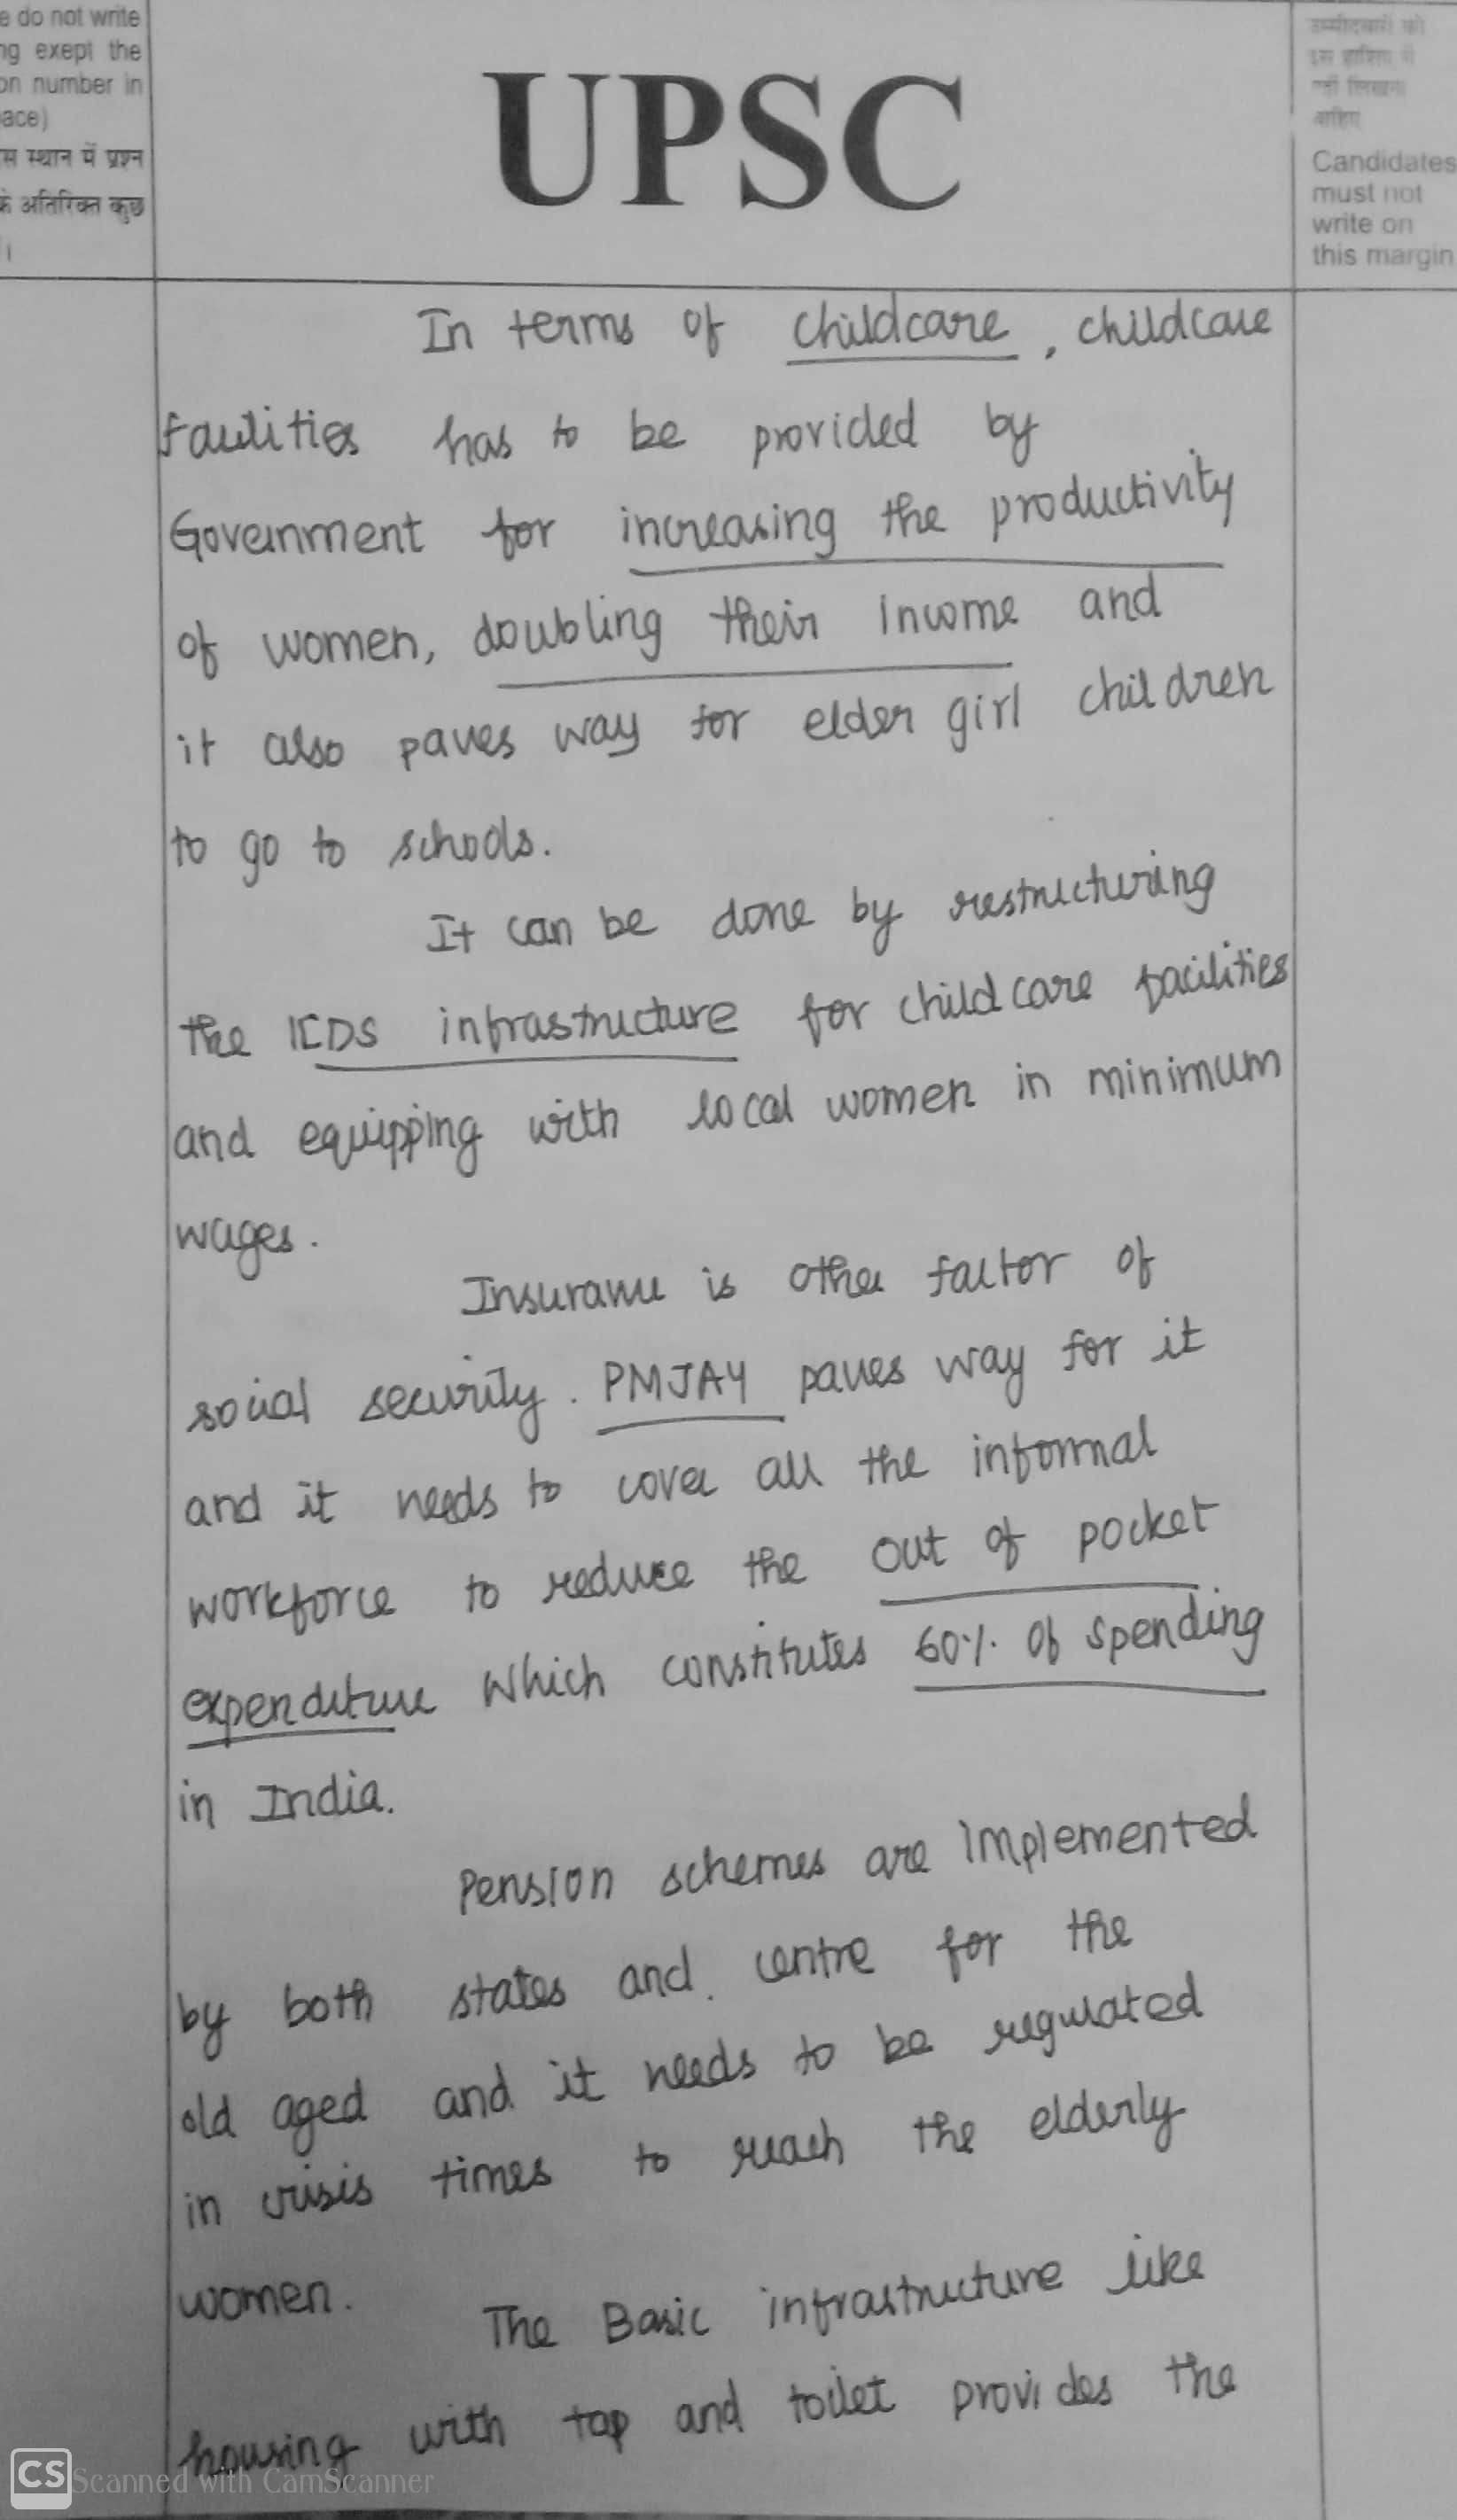 e do not write
ng exept the
on number in
ace)
स स्थान में प्रश्न
के अतिरिक्त कुछ
।
UPSC
उम्मीदवारों को
इस हाशिए में
नहीं लिखना
चाहिए
Candidates
must not
write on
this margin
In terms of childcare, childcare
facilities has to be provided by
Government for increasing the productivity
of women, doubling their income and
it also paves way for elder girl children
to go to schools.
It can be done by restructuring
the ICDS infrastructure for childcare facilities
and equipping with local women in minimum
wages.
Insurance is other factor of
social security. PMJAY paves way for it
and it needs to cover all the informal
workforce to reduce the out of pocket
expenditure which constitutes 60% of spending
in India.
Pension schemes are implemented
by both states and centre for the
old aged and it needs to be regulated
in crisis times to reach the elderly
women.
The Basic infrastructure like
housing with tap and toilet provides the
CS Scanned with CamScanner